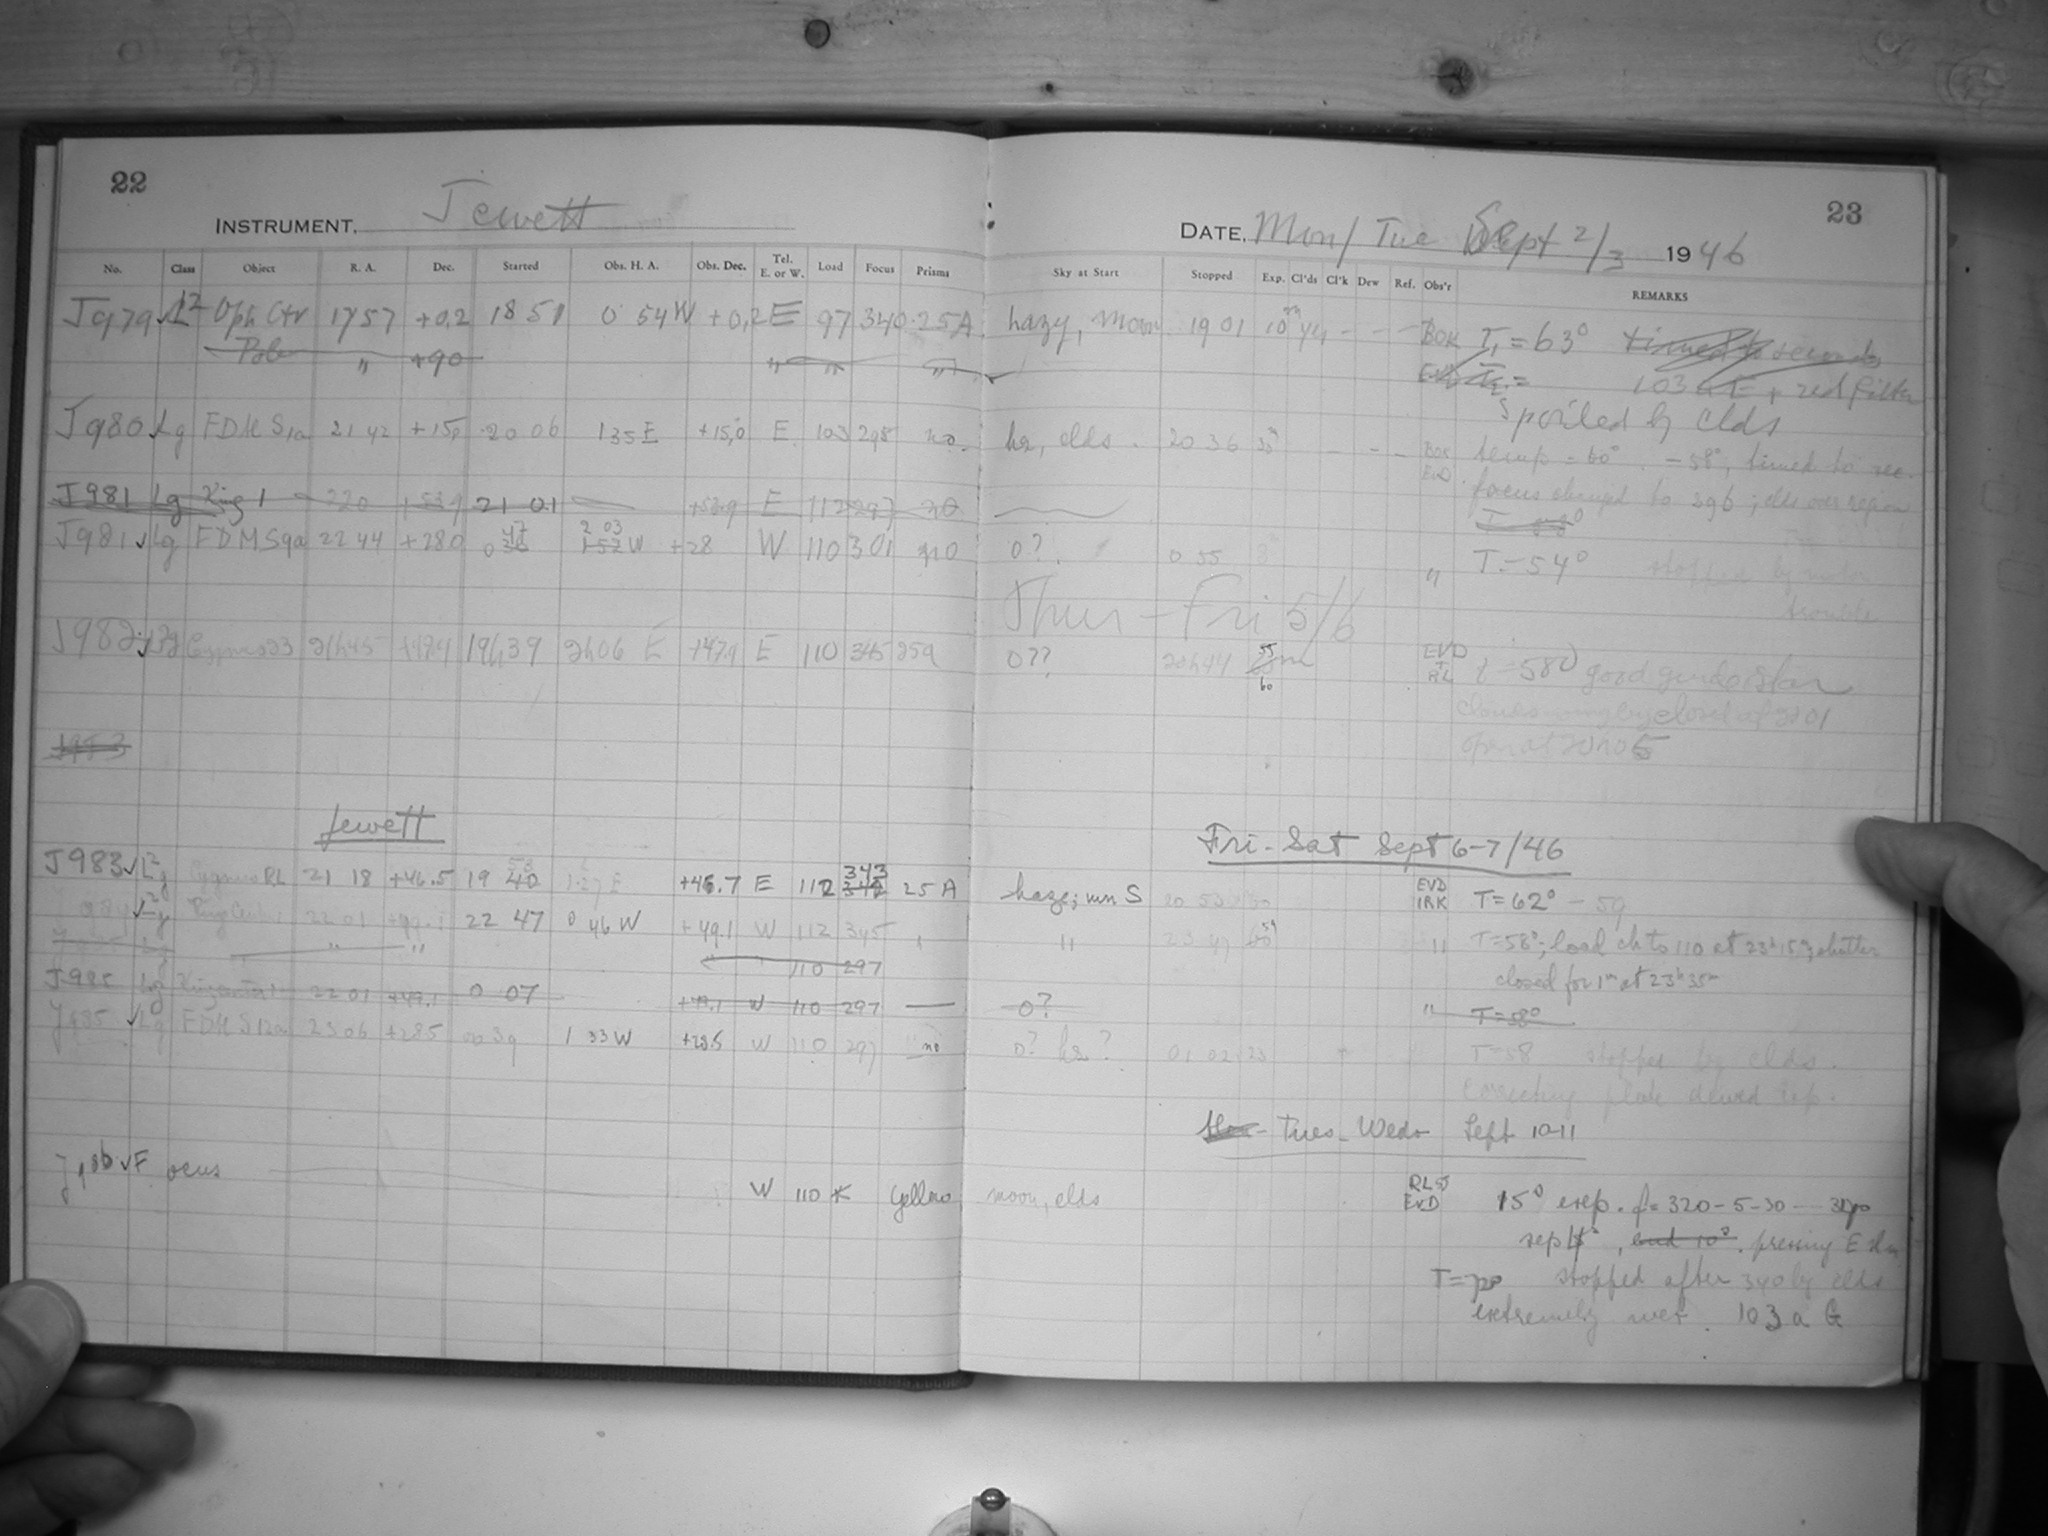 22
INSTRUMENT. Jewett
No. Class Object R. A. Dec. Started Obs. H. A. Obs. Dec. Tel. E. or W. Load Focus Prisms
J979 L2 Oph Ctr 17 57 +0.2 18 51 0 54 W +0,2 E 97 340 25A
Pole " +90 " " "
J980 Lg FDM S1a 21 42 +15,0 20 06 1 35 E +15,0 E 103 298 no
J981 Lg King 1 220 +53.9 21 01 +53.9 E 112 297 no
J981 Lg FDM S9a 22 44 +280 0 47 2 03 W +28 W 110 301 no
J982 Cygnus 23 21h45 +47.9 19h39 2h06 E +47.9 E 110 345 25a
J983
Jewett
J983 Cygnus RL 21 18 +46.5 19 53 40 1 27 E +46.7 E 112 343 25 A
984 22 01 +49.1 22 47 0 46 W +49.1 W 112 345 "
" " 110 297
J985 Lg 22 01 +49.1 0 07 +49.1 W 110 297 —
J985 Lg FDM S12a 23 06 +28.5 00 39 1 33 W +28.5 W 110 297 no
J986 Focus W 110 * yellow
23
DATE. Mon/Tue Sept 2/3 1946
Sky at Start Stopped Exp. Cl'ds Cl'k Dew Ref. Obs'r REMARKS
hazy, moon 19 01 10m yes - - - BOK T1 = 63° timed to seconds
EVD T2 = 103a E + red filter
Spoiled by clds
hz, clds. 20 36 30m - - - BOK temp = 60° - 58°, timed to sec.
EVD focus changed to 296; clds over region
0? 0 55 8m " T = 54° stopped by motor
trouble
Thur - Fri 5/6
0?? 20h44 55 m 60 EVD + RL t = 58° good guide star
closed at 20 01
open at 20h06
Fri - Sat Sept 6-7/46
haze; mn S 20 53 60 EVD IRK T = 62° - 59
" 23 47 59 " T = 58°; load ch to 110 at 23h 15m; shutter
closed for 1m at 23h 35m
0? " T = 58°
0? hz? 01 02 23 T = 58 stopped by clds.
correcting plate dewed up.
Tues - Weds Sept 10-11
moon, clds RL EVD 15s exp. f = 320 - 5 - 30 -
sep , end 10s. pressing E
T = 70 stopped after 340 by clds
extremely wet. 103 a G